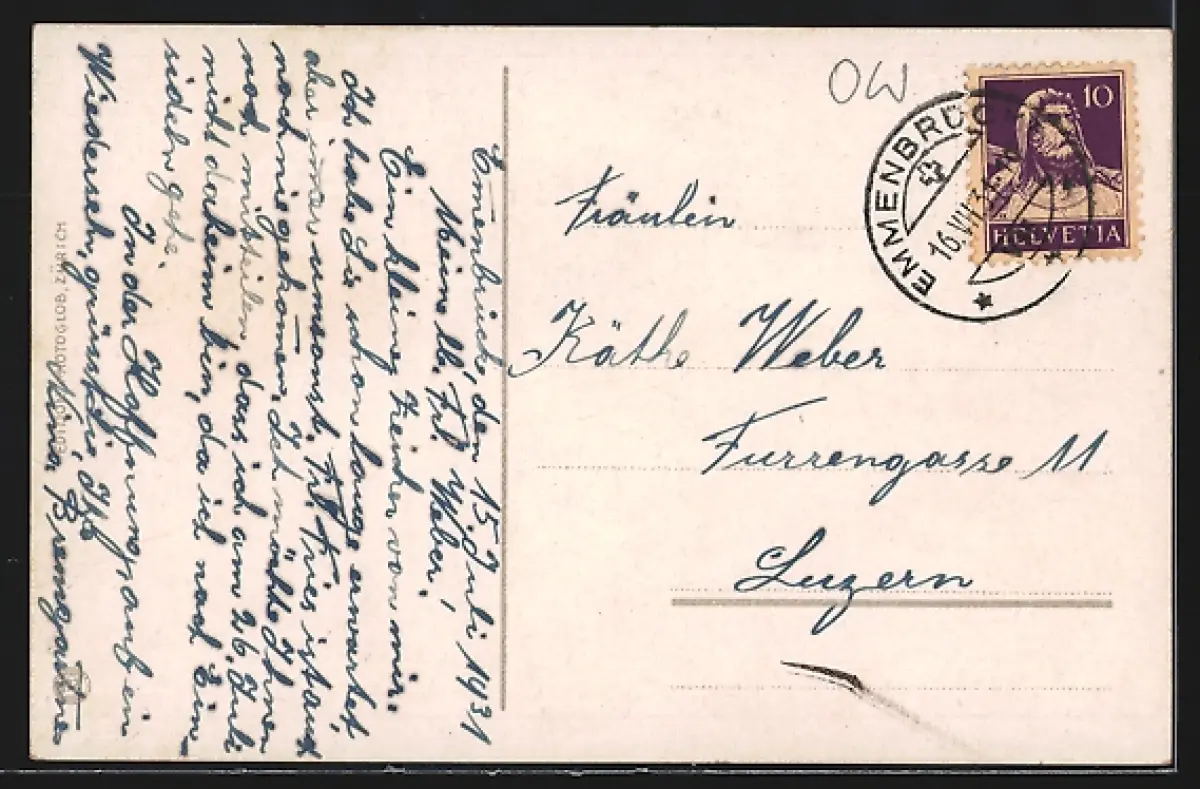 Emmenbrücke, den 15. Juli 1931
Meine lb. Frl. Weber!
Ein kleines Zeichen von mir.
Ich habe Sie schon lange erwartet,
aber immer umsonst. Frl. Fries ist auch
noch nie gekomen. Ich möchte Ihnen
noch mitteilen, dass ich am 26. Juli
nicht daheim bin, da ich nach Ein-
sideln gehe.
In der Hoffnung auf ein
Wiederseh, grüsst Sie, Ihre
Nina Bremgartner
EDITION PHOTOGLOB, ZÜRICH
OW
EMMENBRÜCKE
16.VII.31
10
HELVETIA
Fräulein
Käthe Weber
Furrengasse 11
Luzern